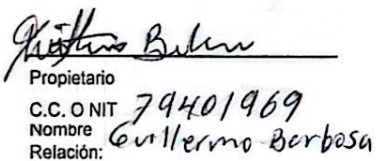 Propietario
C.C. O NIT 79401969
Nombre Guillermo Barbosa
Relación: